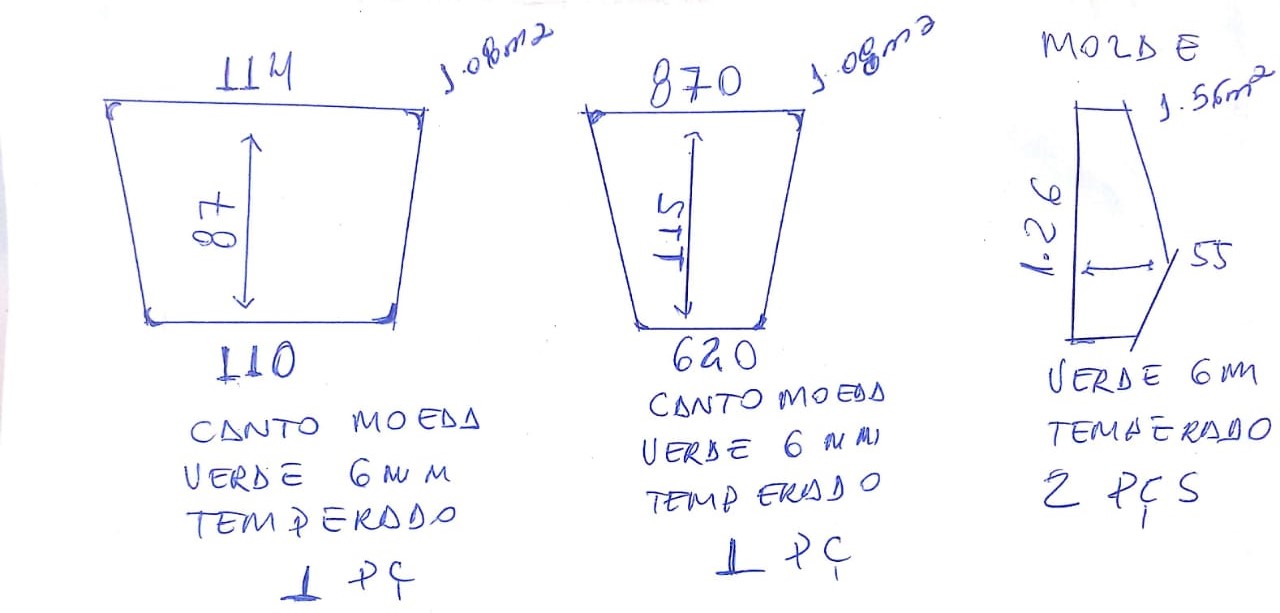 114
1.08m2
87
110
CANTO MOEDA
VERDE 6MM
TEMPERADO
1 PÇ
870
1.08m2
115
620
CANTO MOEDA
VERDE 6MM
TEMPERADO
1 PÇ
MOLDE
1.56m²
1.26
55
VERDE 6MM
TEMPERADO
2 PÇS